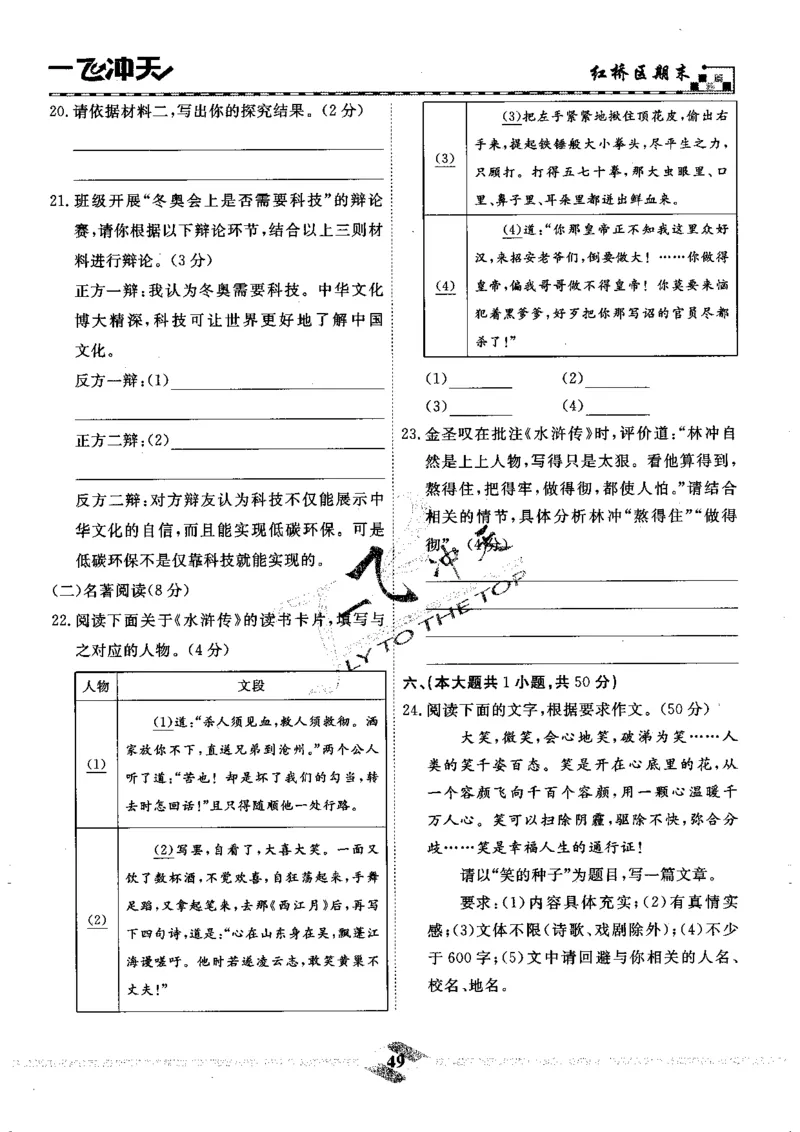 一飞冲天
红桥区期末
20.请依据材料二,写出你的探究结果。(2分)
21.班级开展“冬奥会上是否需要科技”的辩论
赛,请你根据以下辩论环节,结合以上三则材
料进行辩论。(3分)
正方一辩:我认为冬奥需要科技。中华文化
博大精深,科技可让世界更好地了解中国
文化。
反方一辩:(1)
正方二辩:(2)
反方二辩:对方辩友认为科技不仅能展示中
华文化的自信,而且能实现低碳环保。可是
低碳环保不是仅靠科技就能实现的。
(二)名著阅读(8分)
22.阅读下面关于《水浒传》的读书卡片,填写与
之对应的人物。(4分)
人物 文段
(1)
(1)道:“杀人须见血,救人须救彻。洒
家放你不下,直送兄弟到沧州。”两个公人
听了道:“苦也!却是坏了我们的勾当,转
去时怎回话!”且只得随顺他一处行路。
(2)
(2)写罢,自看了,大喜大笑。一面又
饮了数杯酒,不觉欢喜,自狂荡起来,手舞
足蹈,又拿起笔来,去那《西江月》后,再写
下四句诗,道是:“心在山东身在吴,飘蓬江
海谩嗟吁。他时若遂凌云志,敢笑黄巢不
丈夫!”
(3)
(3)把左手紧紧地揪住顶花皮,偷出右
手来,提起铁锤般大小拳头,尽平生之力,
只顾打。打得五七十拳,那大虫眼里、口
里、鼻子里、耳朵里都迸出鲜血来。
(4)
(4)道:“你那皇帝正不知我这里众好
汉,来招安老爷们,倒要做大!……你做得
皇帝,偏我哥哥做不得皇帝!你莫要来恼
犯着黑爹爹,好歹把你那写诏的官员尽都
杀了!”
(1) (2)
(3) (4)
23.金圣叹在批注《水浒传》时,评价道:“林冲自
然是上上人物,写得只是太狠。看他算得到,
熬得住,把得牢,做得彻,都使人怕。”请结合
相关的情节,具体分析林冲“熬得住”“做得
彻”。(4分)
一飞冲天
FLY TO THE TOP
六、(本大题共1小题,共50分)
24.阅读下面的文字,根据要求作文。(50分)
大笑,微笑,会心地笑,破涕为笑……人
类的笑千姿百态。笑是开在心底里的花,从
一个容颜飞向千百个容颜,用一颗心温暖千
万人心。笑可以扫除阴霾,驱除不快,弥合分
歧……笑是幸福人生的通行证!
请以“笑的种子”为题目,写一篇文章。
要求:(1)内容具体充实;(2)有真情实
感;(3)文体不限(诗歌、戏剧除外);(4)不少
于600字;(5)文中请回避与你相关的人名、
校名、地名。
49